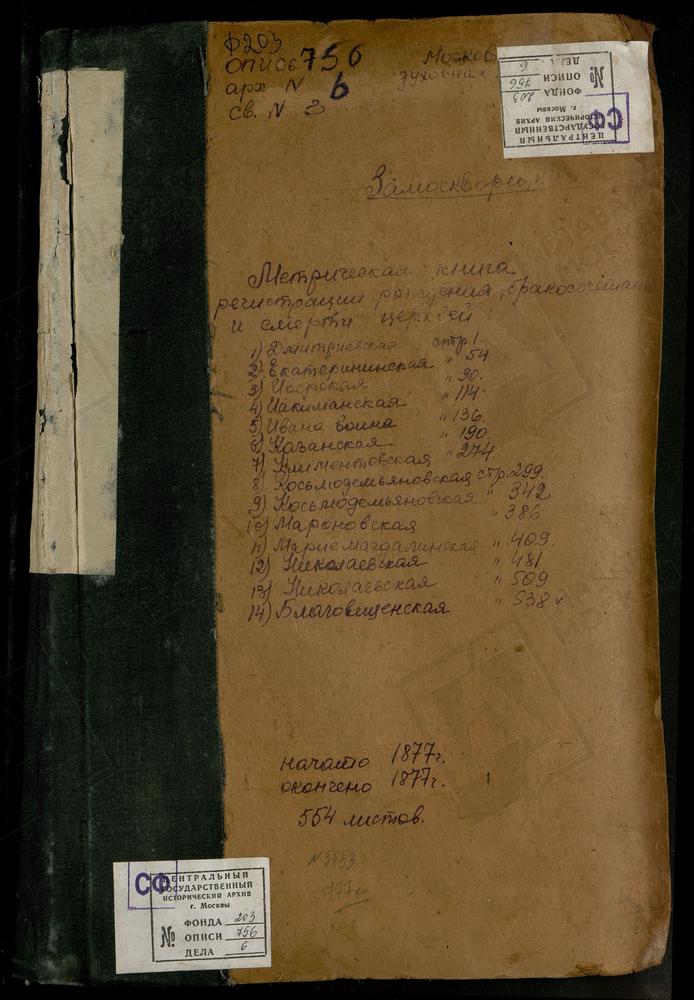 Ф203
опись 756
арх N 6
св. N 3
Москов
духовная
ЦЕНТРАЛЬНЫЙ
ГОСУДАРСТВЕННЫЙ
ИСТОРИЧЕСКИЙ АРХИВ
г. Москвы
СФ
№
ФОНДА 203
ОПИСИ 756
ДЕЛА 6
Замоскворец
Метрическая книга
регистрации рождения, бракосочетан
и смерти церквей:
1) Дмитриевская стр 1.
2) Екатерининская " 54
3) Иверская " 90.
4) Иакиманская " 114
5) Ивана воина " 136.
6) Казанская " 190.
7) Климентовская " 274
8) Косьмодемьяновская стр. 299.
9) Косьмодемьяновская " 342
10) Мароновская " 386
11) Мариемагдалинская " 409.
12) Николаевская " 481
13) Николаевская " 509
14) Благовещенская " 538
начато 1877г.
окончено 1877г.
554 листов.
N 3833
СФ
ЦЕНТРАЛЬНЫЙ
ГОСУДАРСТВЕННЫЙ
ИСТОРИЧЕСКИЙ АРХИВ
г. Москвы
№
ФОНДА 203
ОПИСИ 756
ДЕЛА 6